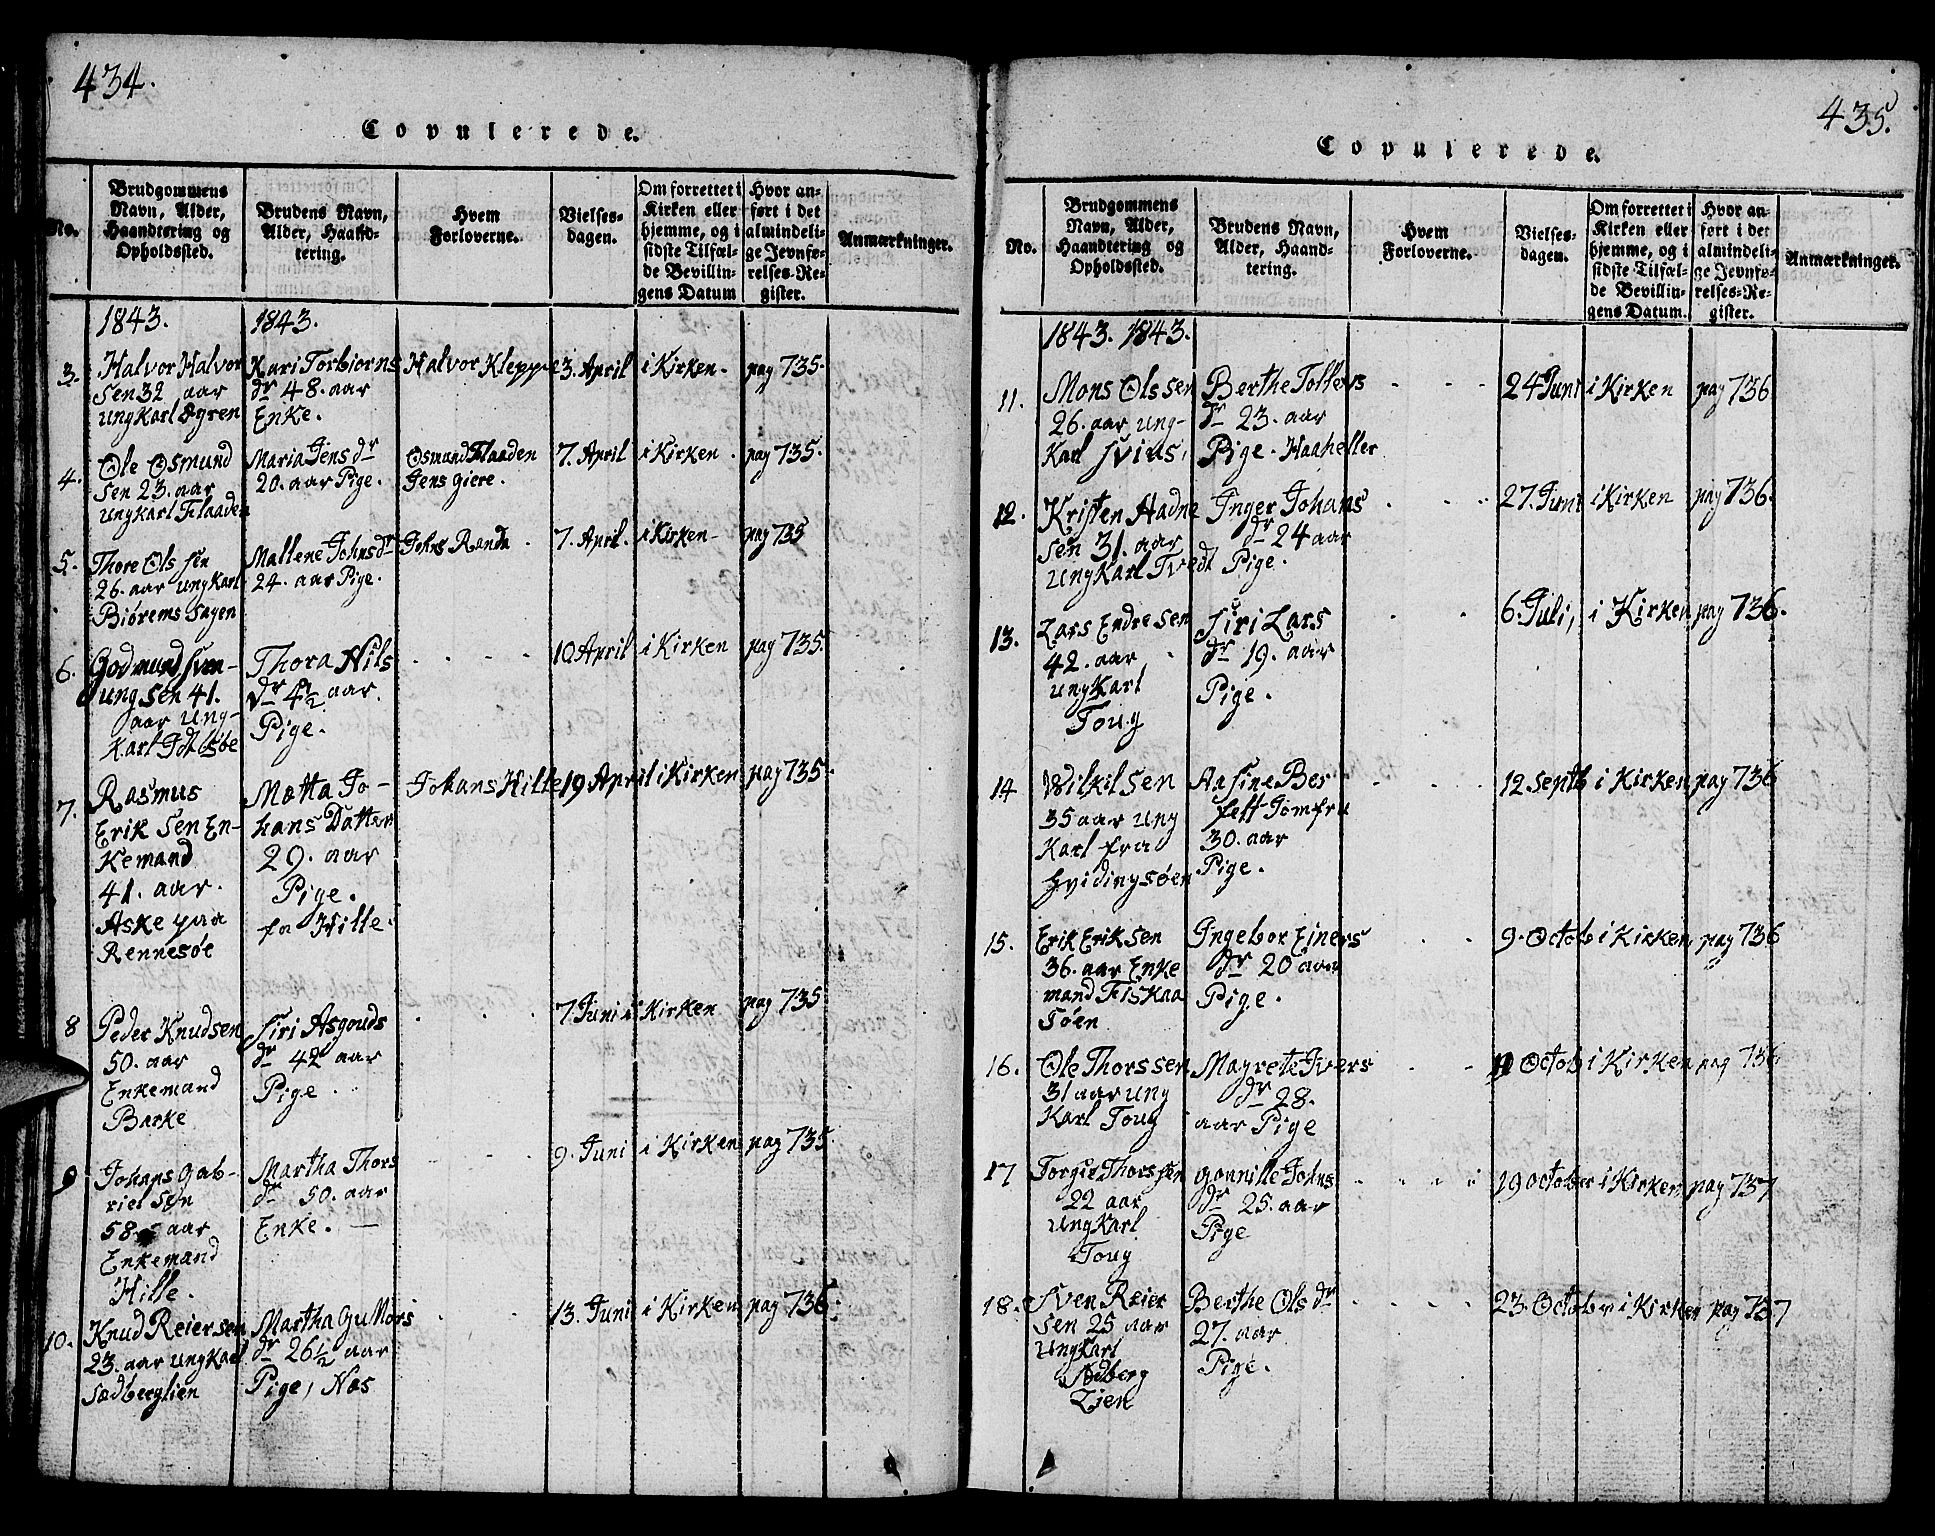 434.
Copulerede.
No.
Brudgommens
Navn, Alder,
Haandtering og
Opholdssted.
Brudens Navn,
Alder, Haand-
tering.
Hvem
Forloverne.
Vielses-
dagen.
Om forrettet i
Kirken eller
hjemme, og i
sidste Tilfæl-
de Bevillin-
gens Datum
Hvor an-
ført i det
almindeli-
ge Jevnfø-
relses-Re-
gister.
Anmærkninger.
1843.
1843.
3.
Halvor Halvor
Sen 32 aar
ungKarl Øgren
Kari Torbiorns
dr 48. aar
Enke.
Halvor Kleppe
3. April
i Kirken.
pag 735.
4.
Ole Osmund
Sen 23. aar
ungkarl Flaaden
Maria Jens dr
20. aar Pige.
Osmund Flaaden
Jens giere.
7. April
i Kirken.
pag 735.
5.
Thore Ols sen
26. aar ungKarl
Biørems Sagen
Mallene Johns dr
24. aar Pige.
Johs Randa
7. April.
i Kirken
pag 735
6.
Godmund Sven-
ungsen 41.
aar ung-
Karl Idtsøe
Thora Nils
dr 4½ aar.
Pige.
10 April
i Kirken
pag 735.
7.
Rasmus
Erik Sen En-
Kemand
41. aar.
Aske paa
Rennesøe
Mætta Jo-
hans Datter
29. aar
Pige.
fa Hille.
Johans Hille
19 April
i Kirken
pag 735.
8
Peder Knudsen
50. aar
Enkemand
Barke
Siri Asgouds
dr 42 aar
Pige.
7 Juni
i Kirken
pag 735
9
Johans Gab-
riel Sen
58. aar
Enkemand
Hille.
Martha Thors
dr 50. aar
Enke.
9. Juni
i Kirken
pag 735.
10.
Knud Reiersen
23. aar ungKarl
Sædberglien
Martha GuMors
dr 26½ aar
Pige, Næs
13. Juni
i Kirken
pag 736.
435.
Copulerede.
No.
Brudgommens
Navn, Alder,
Haandtering og
Opholdssted.
Brudens Navn,
Alder, Haand-
tering.
Hvem
Forloverne.
Vielses-
dagen.
Om forrettet i
Kirken eller
hjemme, og i
sidste Tilfæl-
de Bevillin-
gens Datum.
Hvor an-
ført i det
almindeli-
ge Jevnfø-
relses-Re-
gister.
Anmærkninger.
1843. 1843.
11.
Mons Ols sen
26. aar ung-
Karl
Berthe Tollevs
dr 23. aar
Pige. Haaheller
24 Juni
i Kirken
pag 736
12.
Kristen Aadne
Sen 31. aar
ungKarl Tvedt
Inger Johans
dr 24 aar
Pige.
27. Juni
i Kirken
pag 736.
13.
Lars Endre Sen
42. aar
ungKarl
Toug
Siri Lars
dr 19. aar
Pige.
6. Juli,
i Kirken
pag 736.
14
Vilkilsen
35 aar ung
Karl fra
Hvidingsøen
Aasine Ber
Jomfru
30. aar
Pige.
12. Septb
i Kirken
pag 736
15.
Erik Erik Sen
36. aar Enke
mand Fiskaa
Søen
Ingebor Einers
dr 20 aar
Pige.
9. Octob
i Kirken
pag 736
16.
Ole Thors sen
31 aar ung
Karl Toug
Magrete Ivers
dr 28.
aar Pige
Octob
i Kirken
pag 736
17
Torger Thorssen
22 aar
ungKarl
Toug
gonnille Johns
dr 25. aar
Pige
19 October
i Kirken
pag 737
18.
Sven Reier
Sen 25 aar
ungKarl
Sædberg
Lien
Berthe Ols dr
27. aar
Pige.
23. October
i Kirken
pag 737